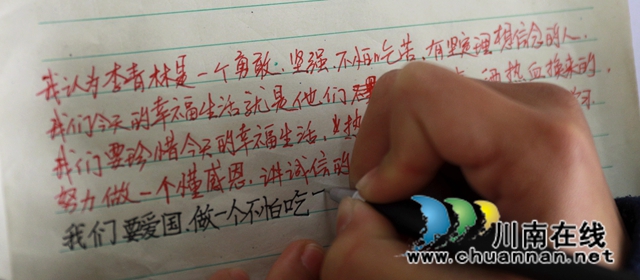 我认为李青林是一个勇敢.坚强.不怕吃苦.有坚定理想信念的人.
我们今天的幸福生活就是他们 洒热血换来的,
我们要珍惜今天的幸福生活,
努力做一个懂感恩.讲诚信的
我们要爱国.做一个不怕吃
川南在线
www.chuannan.net